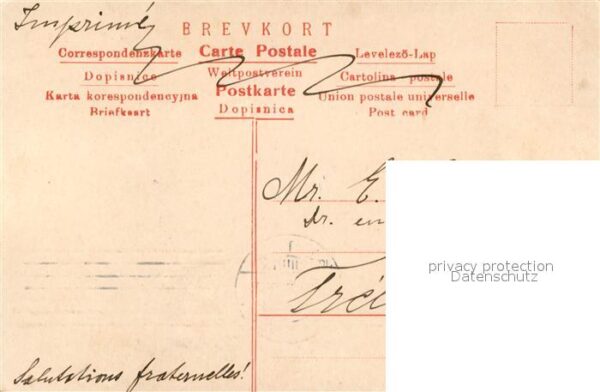 Imprimé
BREVKORT
Correspondenzkarte Carte Postale Levelező-Lap
Dopisnice Weltpostverein Cartolina postale
Karta korespondencyjna Postkarte Union postale universelle
Briefkaart Dopisnica Post card
Mr. E.
privacy protection
Datenschutz
Salutations fraternelles!